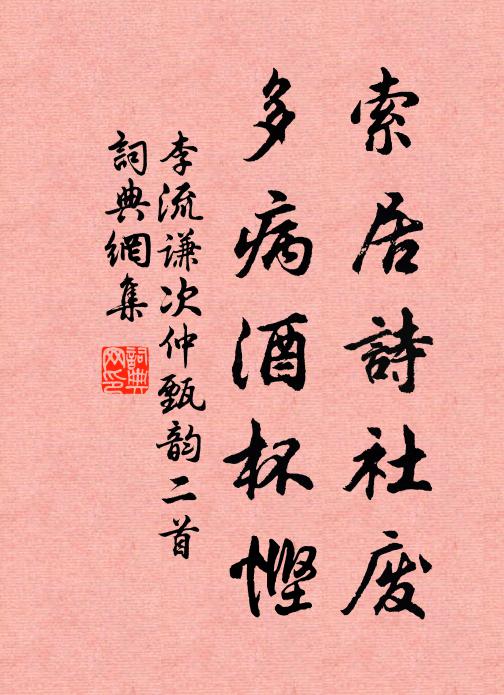 索居詩社废
多病酒杯慳
李流謙次仲甄韵二首
詞典網集
詞典網印